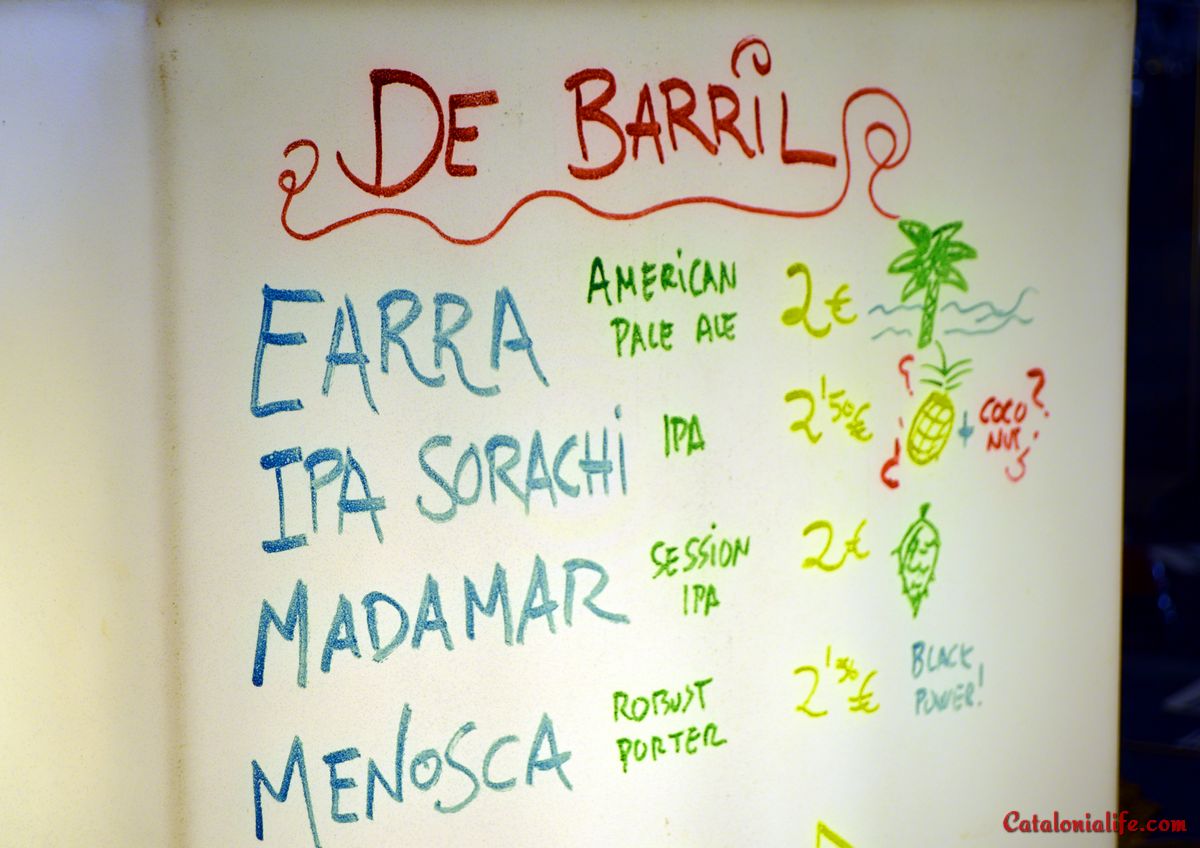 DE BARRIL
EARRA AMERICAN PALE ALE 2€
IPA SORACHI IPA 2'50€ ¿ + COCO NUT?
MADAMAR SESSION IPA 2€
MENOSCA ROBUST PORTER 2'50€ BLACK POWER!
Catalonialife.com